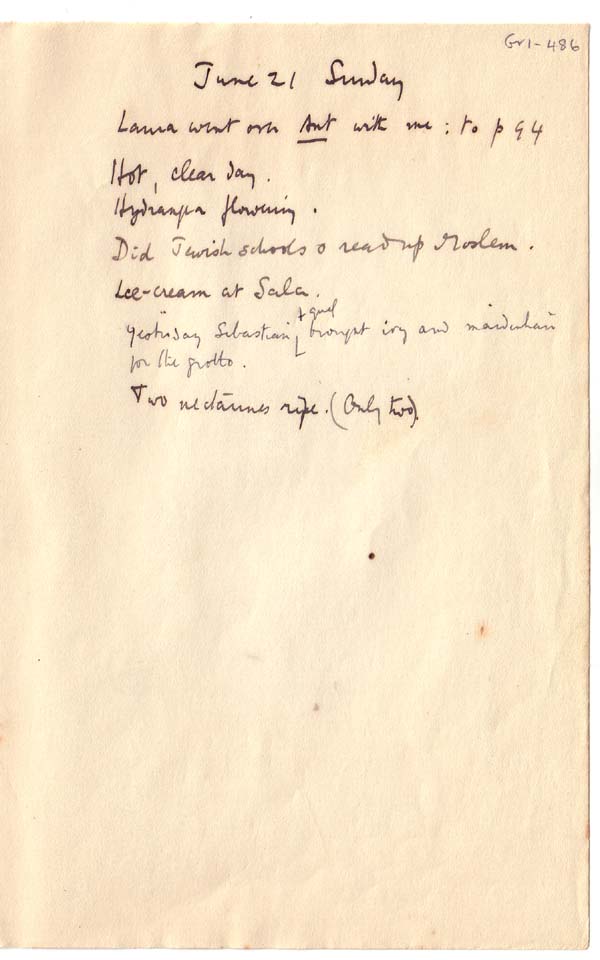 Gr1-486
June 21 Sunday
Laura went over Ant with me : to p 94
Hot, clear day.
Hydrangea flowering.
Did Jewish schools & read up Moslem.
Ice-cream at Sala.
+ quel
Yesterday Sebastian brought ivy and maidenhair
for the grotto.
Two nectarines ripe. (Only two).